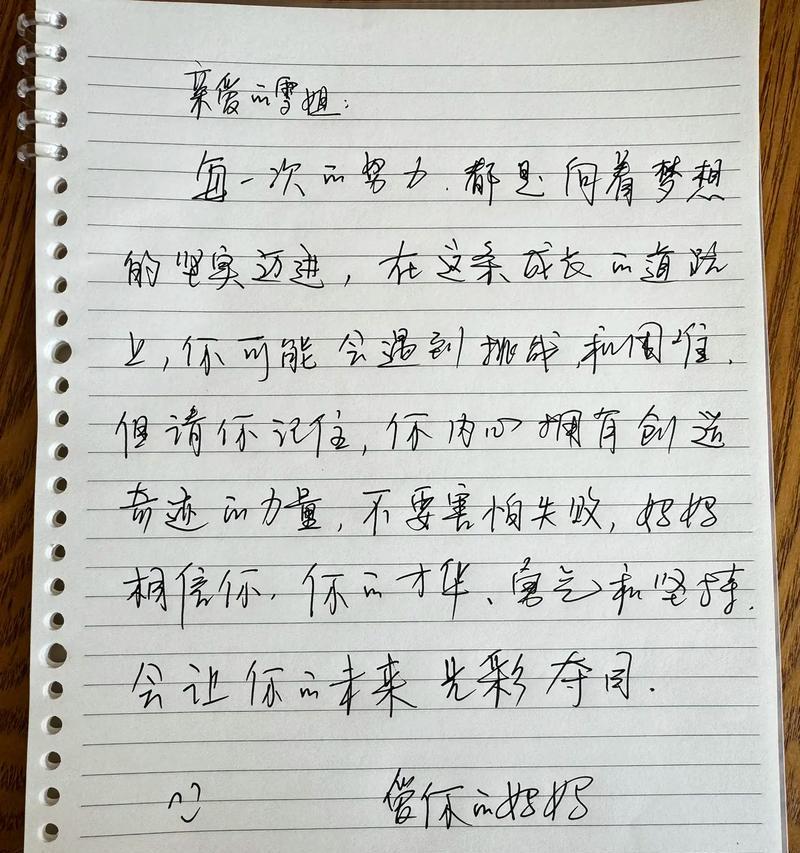 亲爱的雪姐：
每一次的努力，都是向着梦想
的坚实迈进，在这条成长的道路
上，你可能会遇到挑战和困难，
但请你记住，你内心拥有创造
奇迹的力量，不要害怕失败，妈妈
相信你，你的才华、勇气和坚持，
会让你的未来光彩夺目。
爱你的妈妈